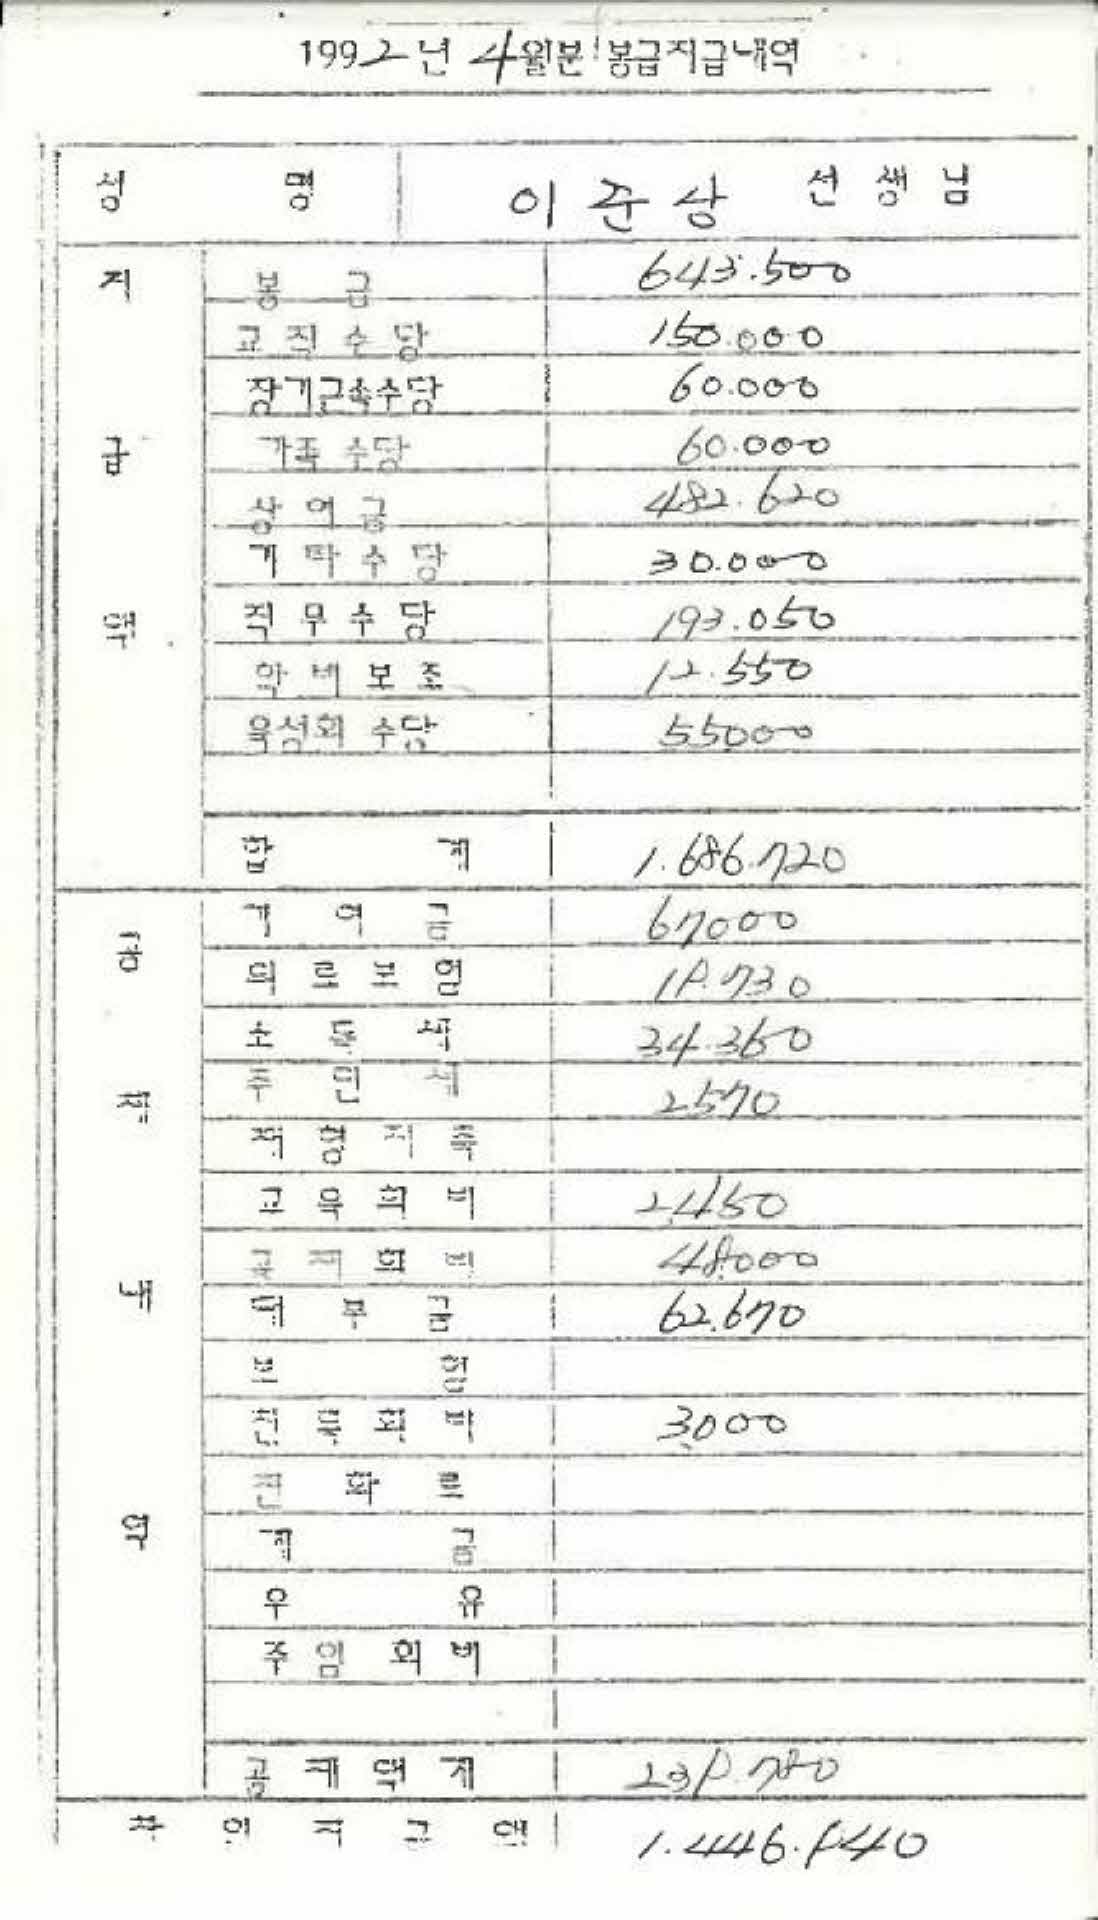 1992년 4월분 봉급지급내역
성 명 이준상 선생님
지급액
봉급 643.500
교직수당 150.000
장기근속수당 60.000
가족수당 60.000
상여금 482.620
기타수당 30.000
직무수당 193.050
학비보조 12.550
육성회 수당 55000
합계 1.686.720
공제내역
기여금 67000
의료보험 19.730
소득세 34.360
주민세 2570
교육회비 2.450
48.000
62.670
친목회비 3.000
전화료
우유
주임회비
공제액계 239.780
차인지급액 1.446.940